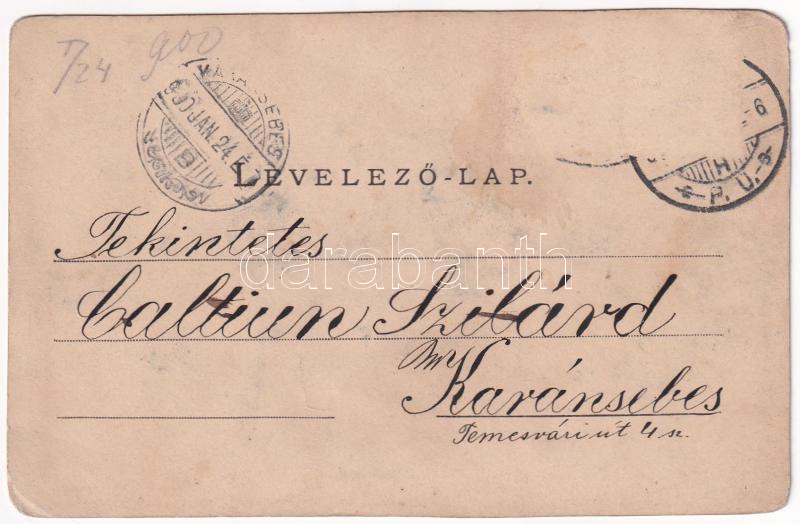 I/24 900
KARÁNSEBES
900 JAN. 24.
6
H
P. U.
LEVELEZŐ-LAP.
Tekintetes
darabanth
Caltiun Szilárd
Karánsebes
Temesvári út 4 sz.